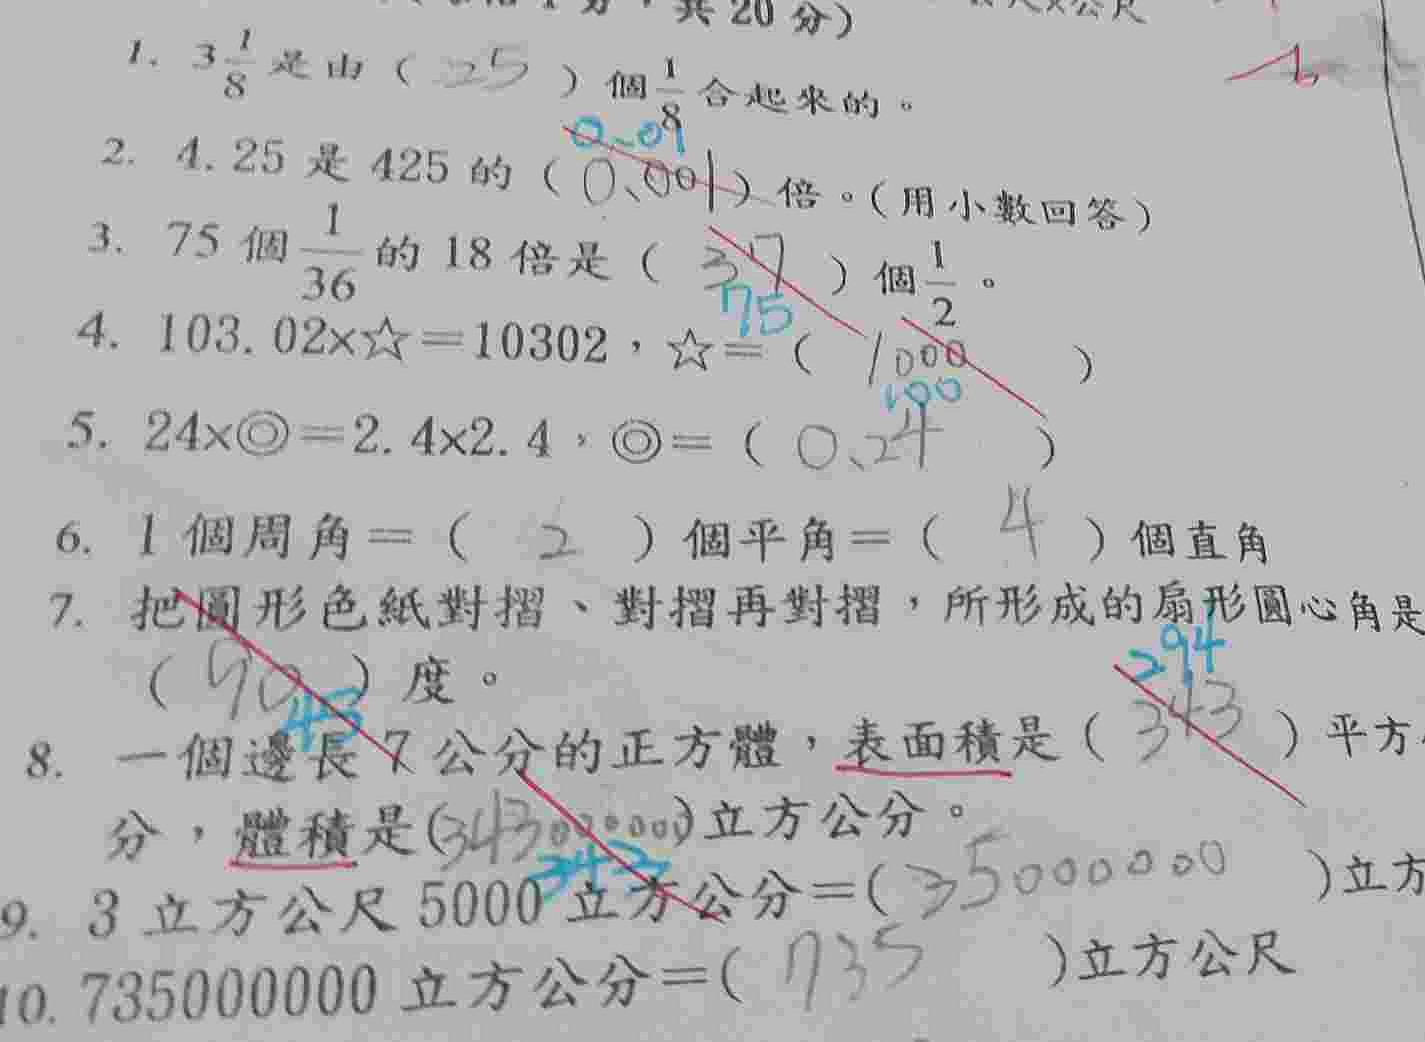 共20分)
1. 3 1/8 是由 ( 25 ) 個 1/8 合起來的。
0.01
2. 4.25 是 425 的 ( 0.001 ) 倍。(用小數回答)
3. 75 個 1/36 的 18 倍是 ( 37 ) 個 1/2 。
75
4. 103.02×☆=10302,☆=( 1000 )
100
5. 24×◎=2.4×2.4,◎=( 0.24 )
6. 1 個周角=( 2 ) 個平角=( 4 ) 個直角
7. 把圓形色紙對摺、對摺再對摺,所形成的扇形圓心角是
( 90 ) 度。
45
294
8. 一個邊長 7 公分的正方體,表面積是 ( 343 ) 平方
分,體積是(343000000)立方公分。
343
9. 3 立方公尺 5000 立方公分=( 35000000 )立方
10. 735000000 立方公分=( 735 )立方公尺